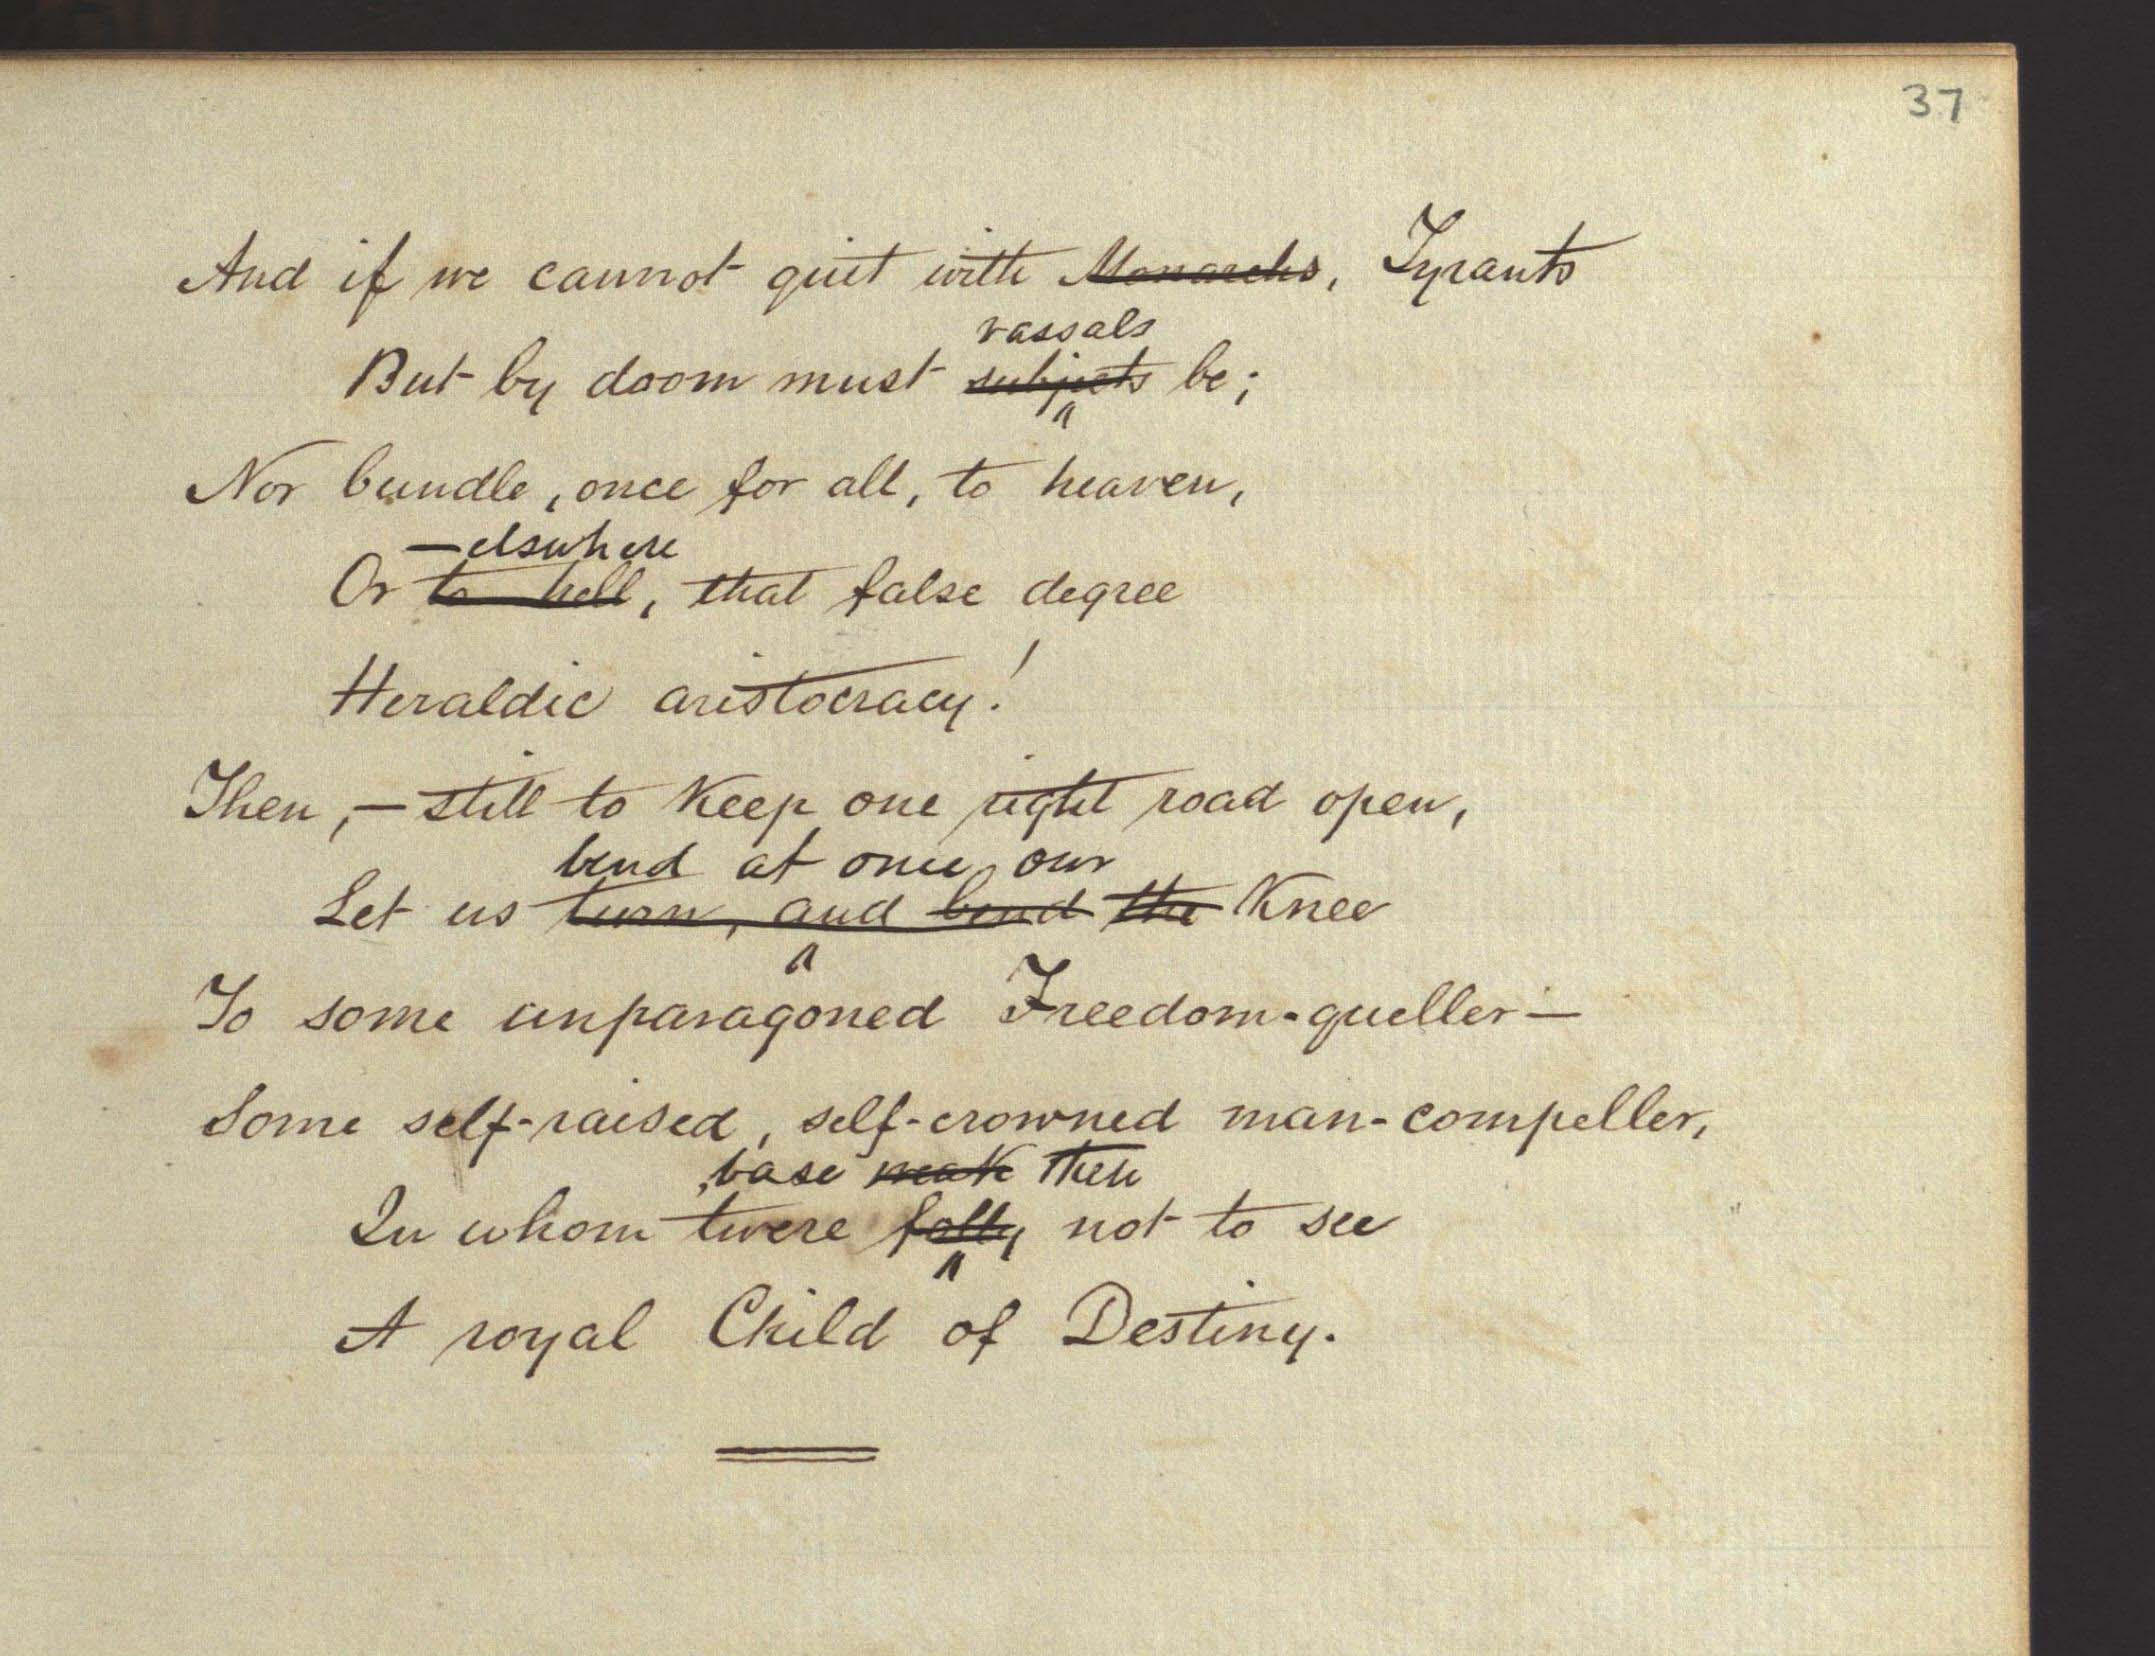 37
And if we cannot quit with Monarchs, Tyrants
vassals
But by doom must subjects be;
Nor bundle, once for all, to heaven,
— elsewhere
Or to hell, that false degree
Heraldic aristocracy!
Then, — still to keep one right road open,
bend at once our
Let us turn, and bend the Knee
To some unparagoned Freedom-queller —
Some self-raised, self-crowned man-compeller,
base weak then
In whom twere folly not to see
A royal Child of Destiny.